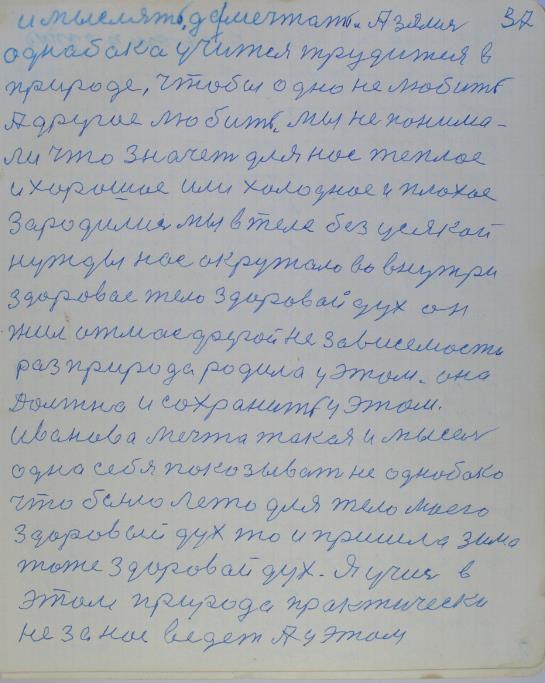 и мыслять да мечтать. А зяlия 37
однабака учится трудится в
природе, чтобы одно не любить
А другое любить. мы не понима-
ли что значет для нас теплое
и хорошое или холодное и плохое
Зародилися мы в теле без усякой
нужды нас окружало во внутри
здоровае тело здоровай дух он
жил отмасферой не зависемость
раз природа родила у этом. она
Должна и сохранить у этом.
Иванова мечта такая и мысля
одна себя показыват не однобако
что было лето для тело моего
Здоровый дух то и пришла зима
тоже здоровай дух. Я учия в
этом природа практически
не за нос ведет А у этом